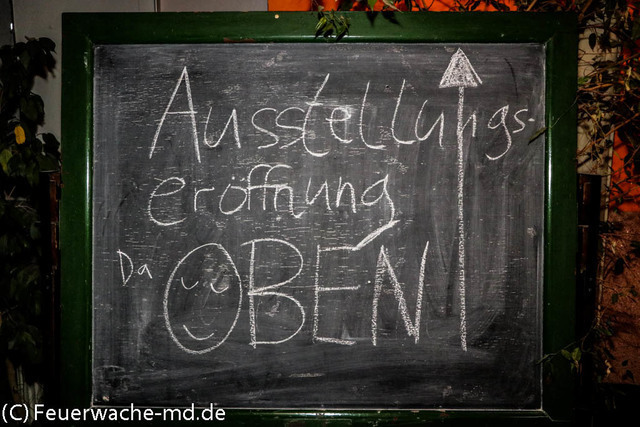 Ausstellungs-
eröffnung
Da OBEN
(C) Feuerwache-md.de